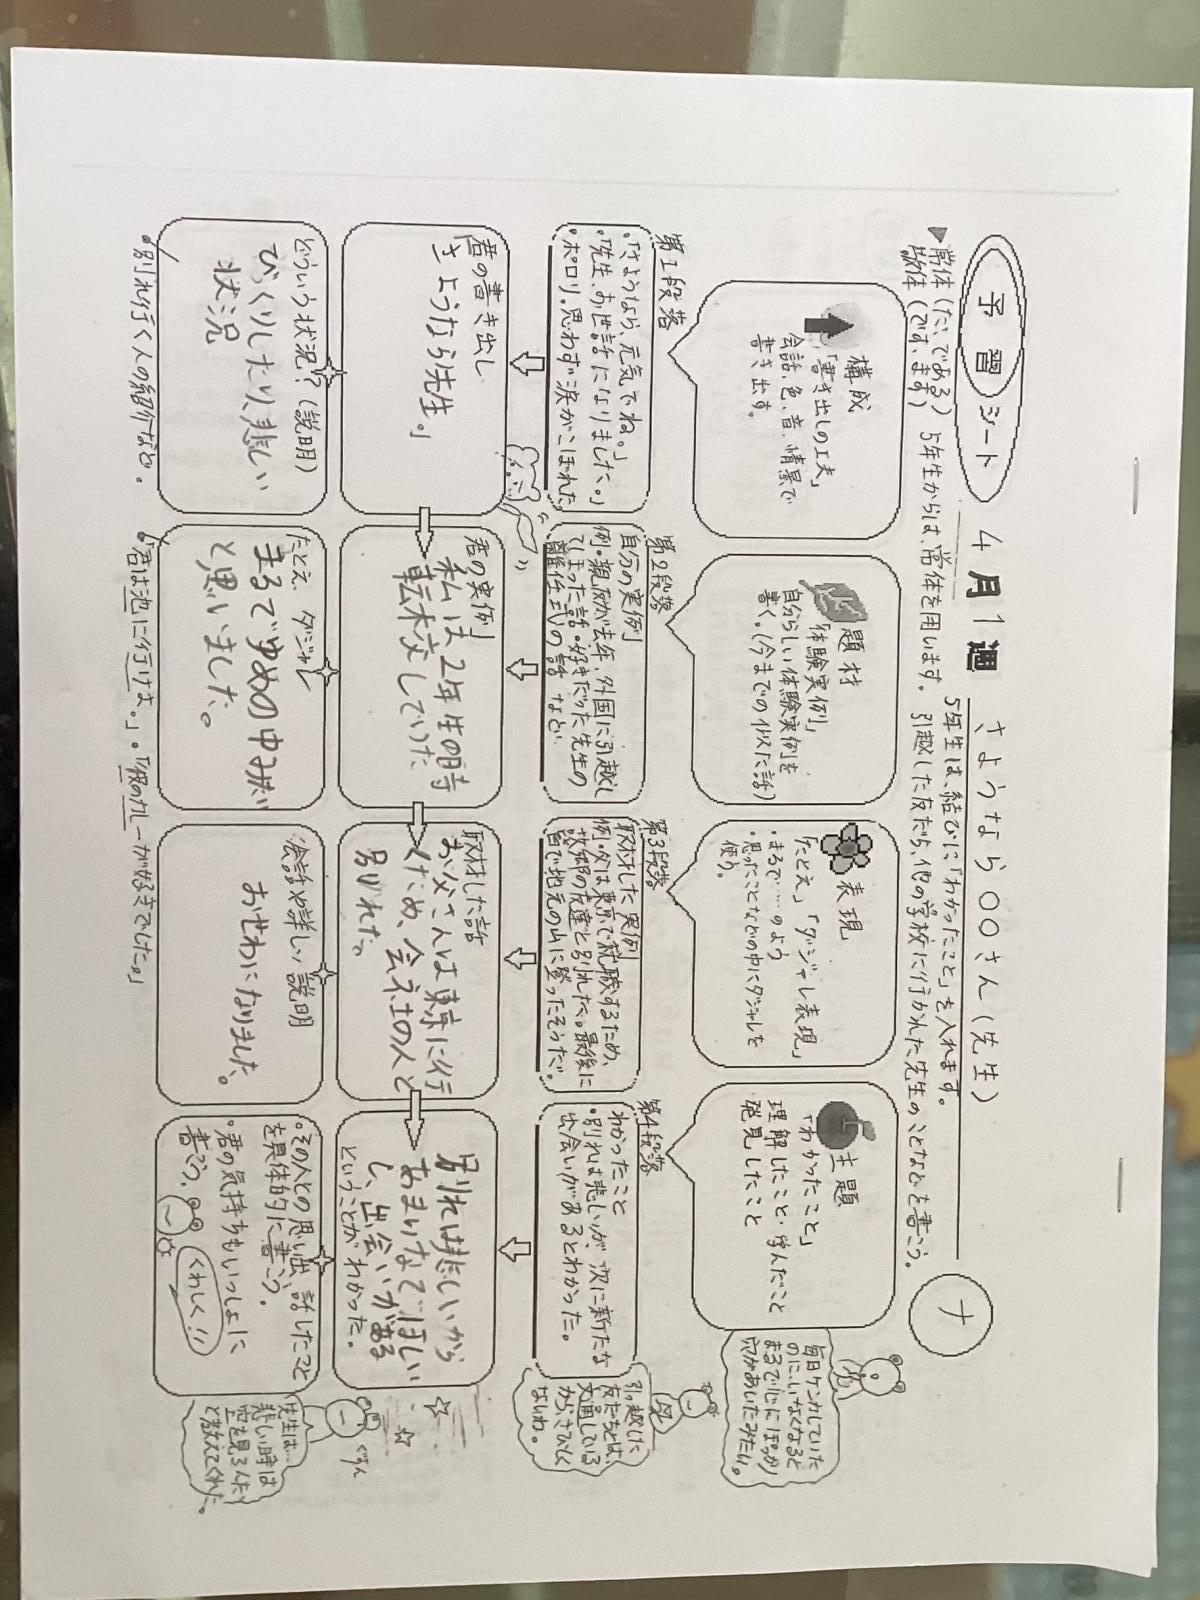 予習シート 4月1週 さようなら○○さん(先生) ナ
▶常体(だ、である)
敬体(です、ます)
5年生からは、常体を用います。
5年生は、結びに「わかったこと」を入れます。
引越した友だち、他の学校に行かれた先生のことなどを書こう。
構成
「書き出しの工夫」
会話、色、音、情景で
書き出す。
題材
「体験実例」
自分らしい体験実例を
書く。(今までの似た話)
表現
「たとえ」「ダジャレ表現」
・まるで……のよう
・思ったことなどの中にダジャレを
使う。
主題
「わかったこと」
理解したこと・学んだこと
発見したこと
毎日ケンカしていた
のに、いなくなると
まるで心にぽっかり
穴があいたみたい。
第1段落
・「さようなら、元気でね。」
・「先生、お世話になりました。」
・ポロリ。思わず涙がこぼれた
第2段落
自分の実例
例・親友が去年、外国に引越し
てしまった話・好きだった先生の
離任式の話 など
第3段落
取材した実例
例・父は東京で就職するため、
故郷の友達と別れた。最後に
皆で地元の山に登ったそうだ。
第4段落
わかったこと
・別れは悲しいが、次に新たな
出会いがあるとわかった。
引越した
友だちとは、
文通している
から、さびしく
ないわ。
君の書き出し
さようなら先生。」
君の実例
私は2年生の時
転校していた
取材した話
お父さんは東京に行
くため、会社の人と
別れた。
別れは悲しいから
あまりなてほしい
し、出会いがある
ということがわかった。
どういう状況?(説明)
びっくりしたり、悲しい
状況
たとえ ダジャレ
まるでゆめの中みたい
と思いました。
会話や詳しい説明
おせわになりました。
・その人との思い出、話したこと
を具体的に書こう。
・君の気持ちもいっしょに
書こう。
くわしく!!
ぐすん
先生は…
悲しい時は
空を見るんだ
と教えてくれた。
・別れ行く人の紹介など。
・「君は池に行けよ。」・「仮のカレーが好きでした。」